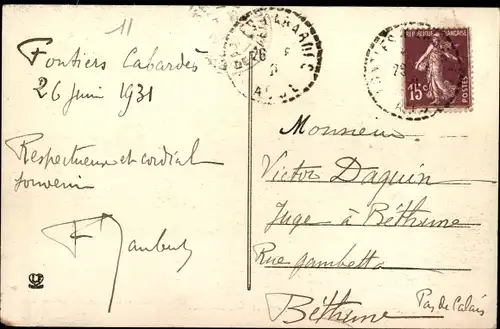 11
Fontiers Cabardès
26 Juin 1931
Respectueux et cordial
souvenir
Monsieur
Victor Daquin
Juge à Béthune
Rue Gambetta
Béthune
Pas de Calais
REPUBLIQUE FRANÇAISE
15c
POSTES